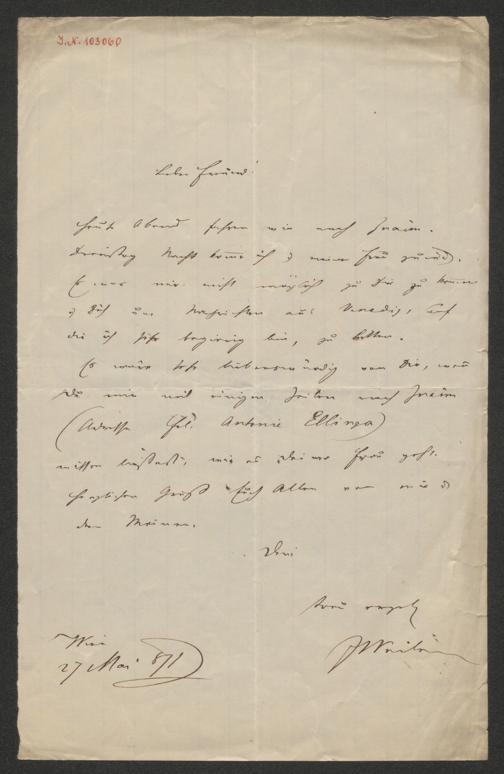 J.N. 103060
Lieber Freund!
Heute Abend fahren wir nach Znaim.
Dienstag Nacht komme ich & meine Frau zurück.
Es war mir nicht möglich zu Dir zu kommen
& Dich um Nachrichten aus Venedig, auf
die ich sehr begierig bin, zu bitten.
Es wäre sehr liebenswürdig von Dir, wenn
Du mir mit einigen Zeilen nach Znaim
(Adresse Frl. Antonie Ellinger)
wissen ließest, wie es Deiner Frau geht.
Herzlichen Gruß Euch Allen von mir &
den Meinen.
Dein
treu
Wien
27 Mai 871